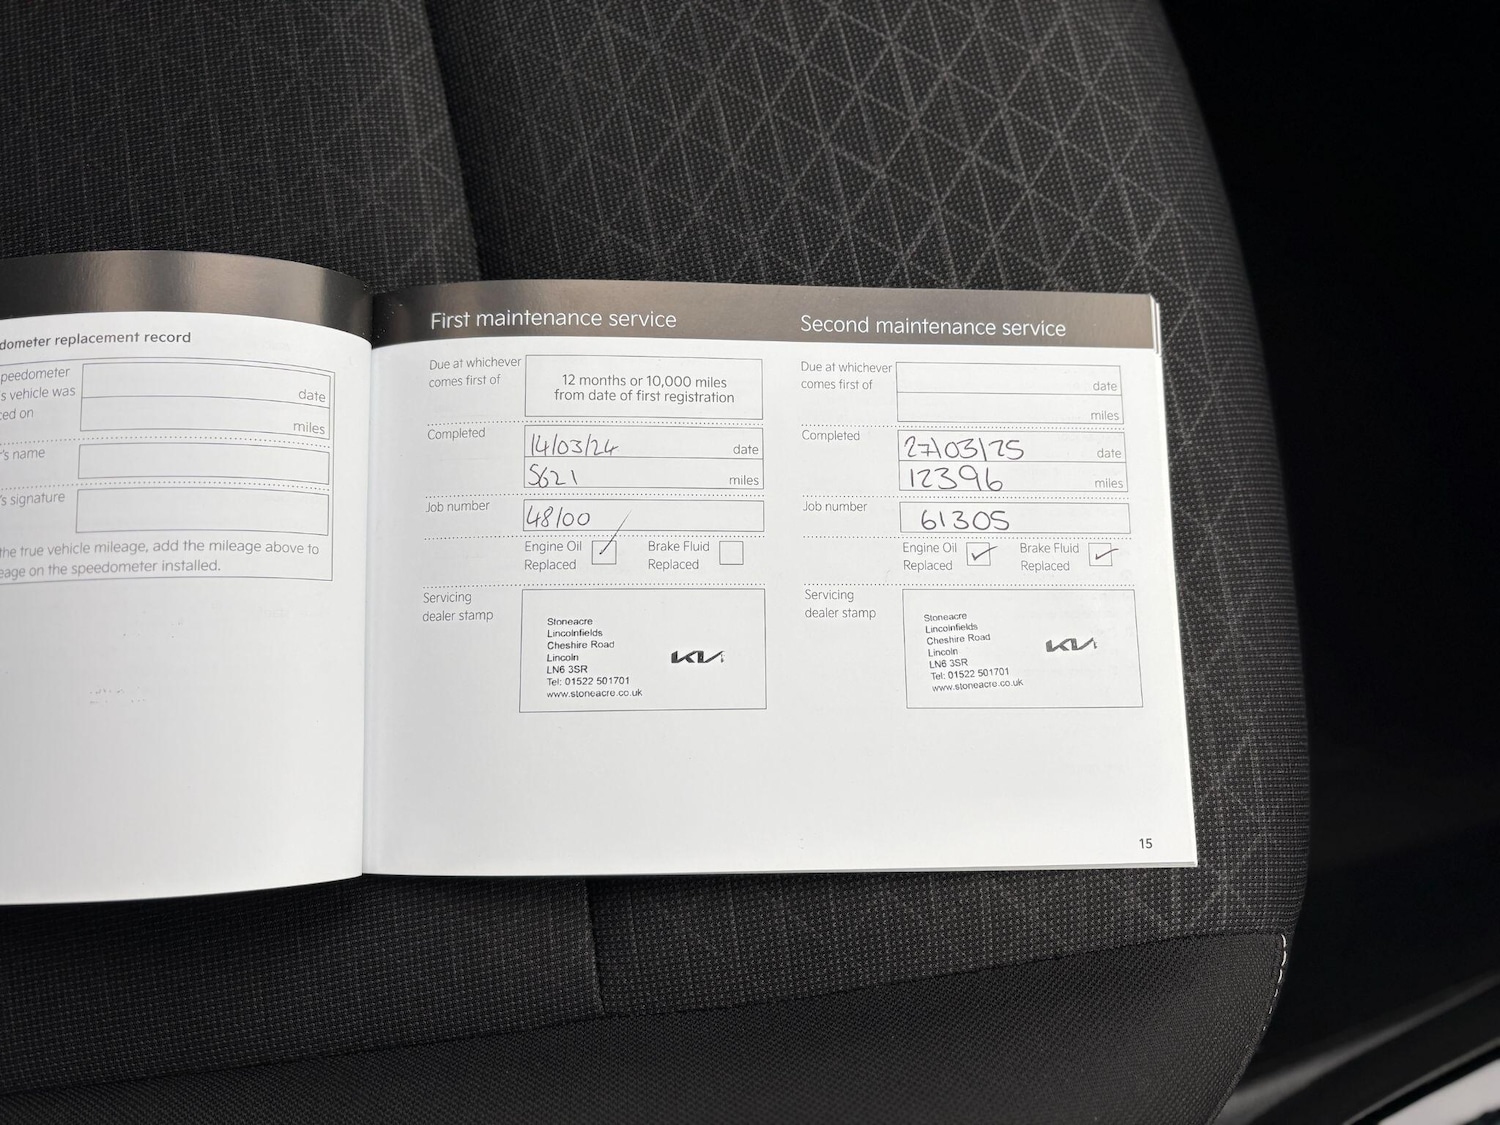 dometer replacement record
peedometer
s vehicle was
ced on
date
miles
's name
's signature
the true vehicle mileage, add the mileage above to
eage on the speedometer installed.
First maintenance service
Due at whichever
comes first of
12 months or 10,000 miles
from date of first registration
Completed
14/03/24
date
5621
miles
Job number
48100
Engine Oil
Replaced
Brake Fluid
Replaced
Servicing
dealer stamp
Stoneacre
Lincolnfields
Cheshire Road
Lincoln
LN6 3SR
Tel: 01522 501701
www.stoneacre.co.uk
KIA
Second maintenance service
Due at whichever
comes first of
date
miles
Completed
27/03/25
date
12396
miles
Job number
61305
Engine Oil
Replaced
Brake Fluid
Replaced
Servicing
dealer stamp
Stoneacre
Lincolnfields
Cheshire Road
Lincoln
LN6 3SR
Tel: 01522 501701
www.stoneacre.co.uk
KIA
15